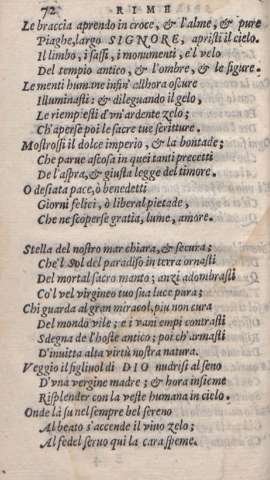 72 RIME
Le braccia aprendo in croce, & l'alme, & pure
Piaghe, largo SIGNORE, apristi il cielo.
Il limbo, i sassi, i monumenti, e'l velo
Del tempio antico, & l'ombre, & le figure.
Le menti humane insin' allhora oscure
Illuminasti: & dileguando il gelo,
Le riempiesti d'vn'ardente zelo;
Ch'aperse poi le sacre tue scritture.
Mostrossi il dolce imperio, & la bontade;
Che parue ascosa in quei tanti precetti
De l'aspra, & giusta legge del timore.
O desiata pace, ò benedetti
Giorni felici, ò liberal pietade,
Che ne scoperse gratia, lume, amore.
Stella del nostro mar chiara, & secura;
Che'l Sol del paradiso in terra ornasti
Del mortal sacro manto; anzi adombrasti
Co'l vel virgineo tuo sua luce pura;
Chi guarda al gran miracol, piu non cura
Del mondo vile; e i vani empi contrasti
Sdegna de l'hoste antico; poi ch'armasti
D'inuitta alta virtù nostra natura.
Veggio il figliuol di DIO nudrirsi al seno
D'vna vergine madre; & hora insieme
Risplender con la veste humana in cielo.
Onde là su nel sempre bel sereno
Al beato s'accende il viuo zelo;
Al fedel seruo qui la cara speme.